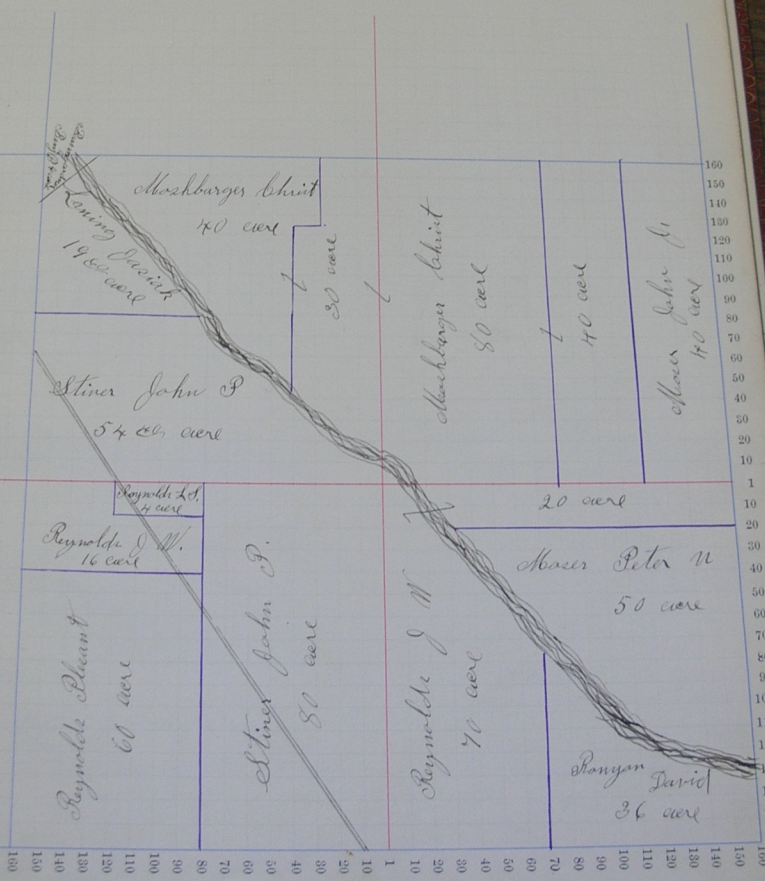 Moshburger Christ
40 acre
Laning Josiah
30 acre
Moshburger Christ
80 acre
40 acre
Moser John Jr
40 acre
Stiner John P
54 acre
Reynolds L S.
4 acre
Reynolds J W.
16 acre
Reynolds Pleasant
60 acre
Stiner John P.
80 acre
Reynolds J W
70 acre
20 acre
Moser Peter N
50 acre
Ronyon David
36 acre
160
150
140
130
120
110
100
90
80
70
60
50
40
30
20
10
1
10
20
30
40
50
60
70
160 150 140 130 120 110 100 90 80 70 60 50 40 30 20 10 1 10 20 30 40 50 60 70 80 90 100 110 120 130 140 150